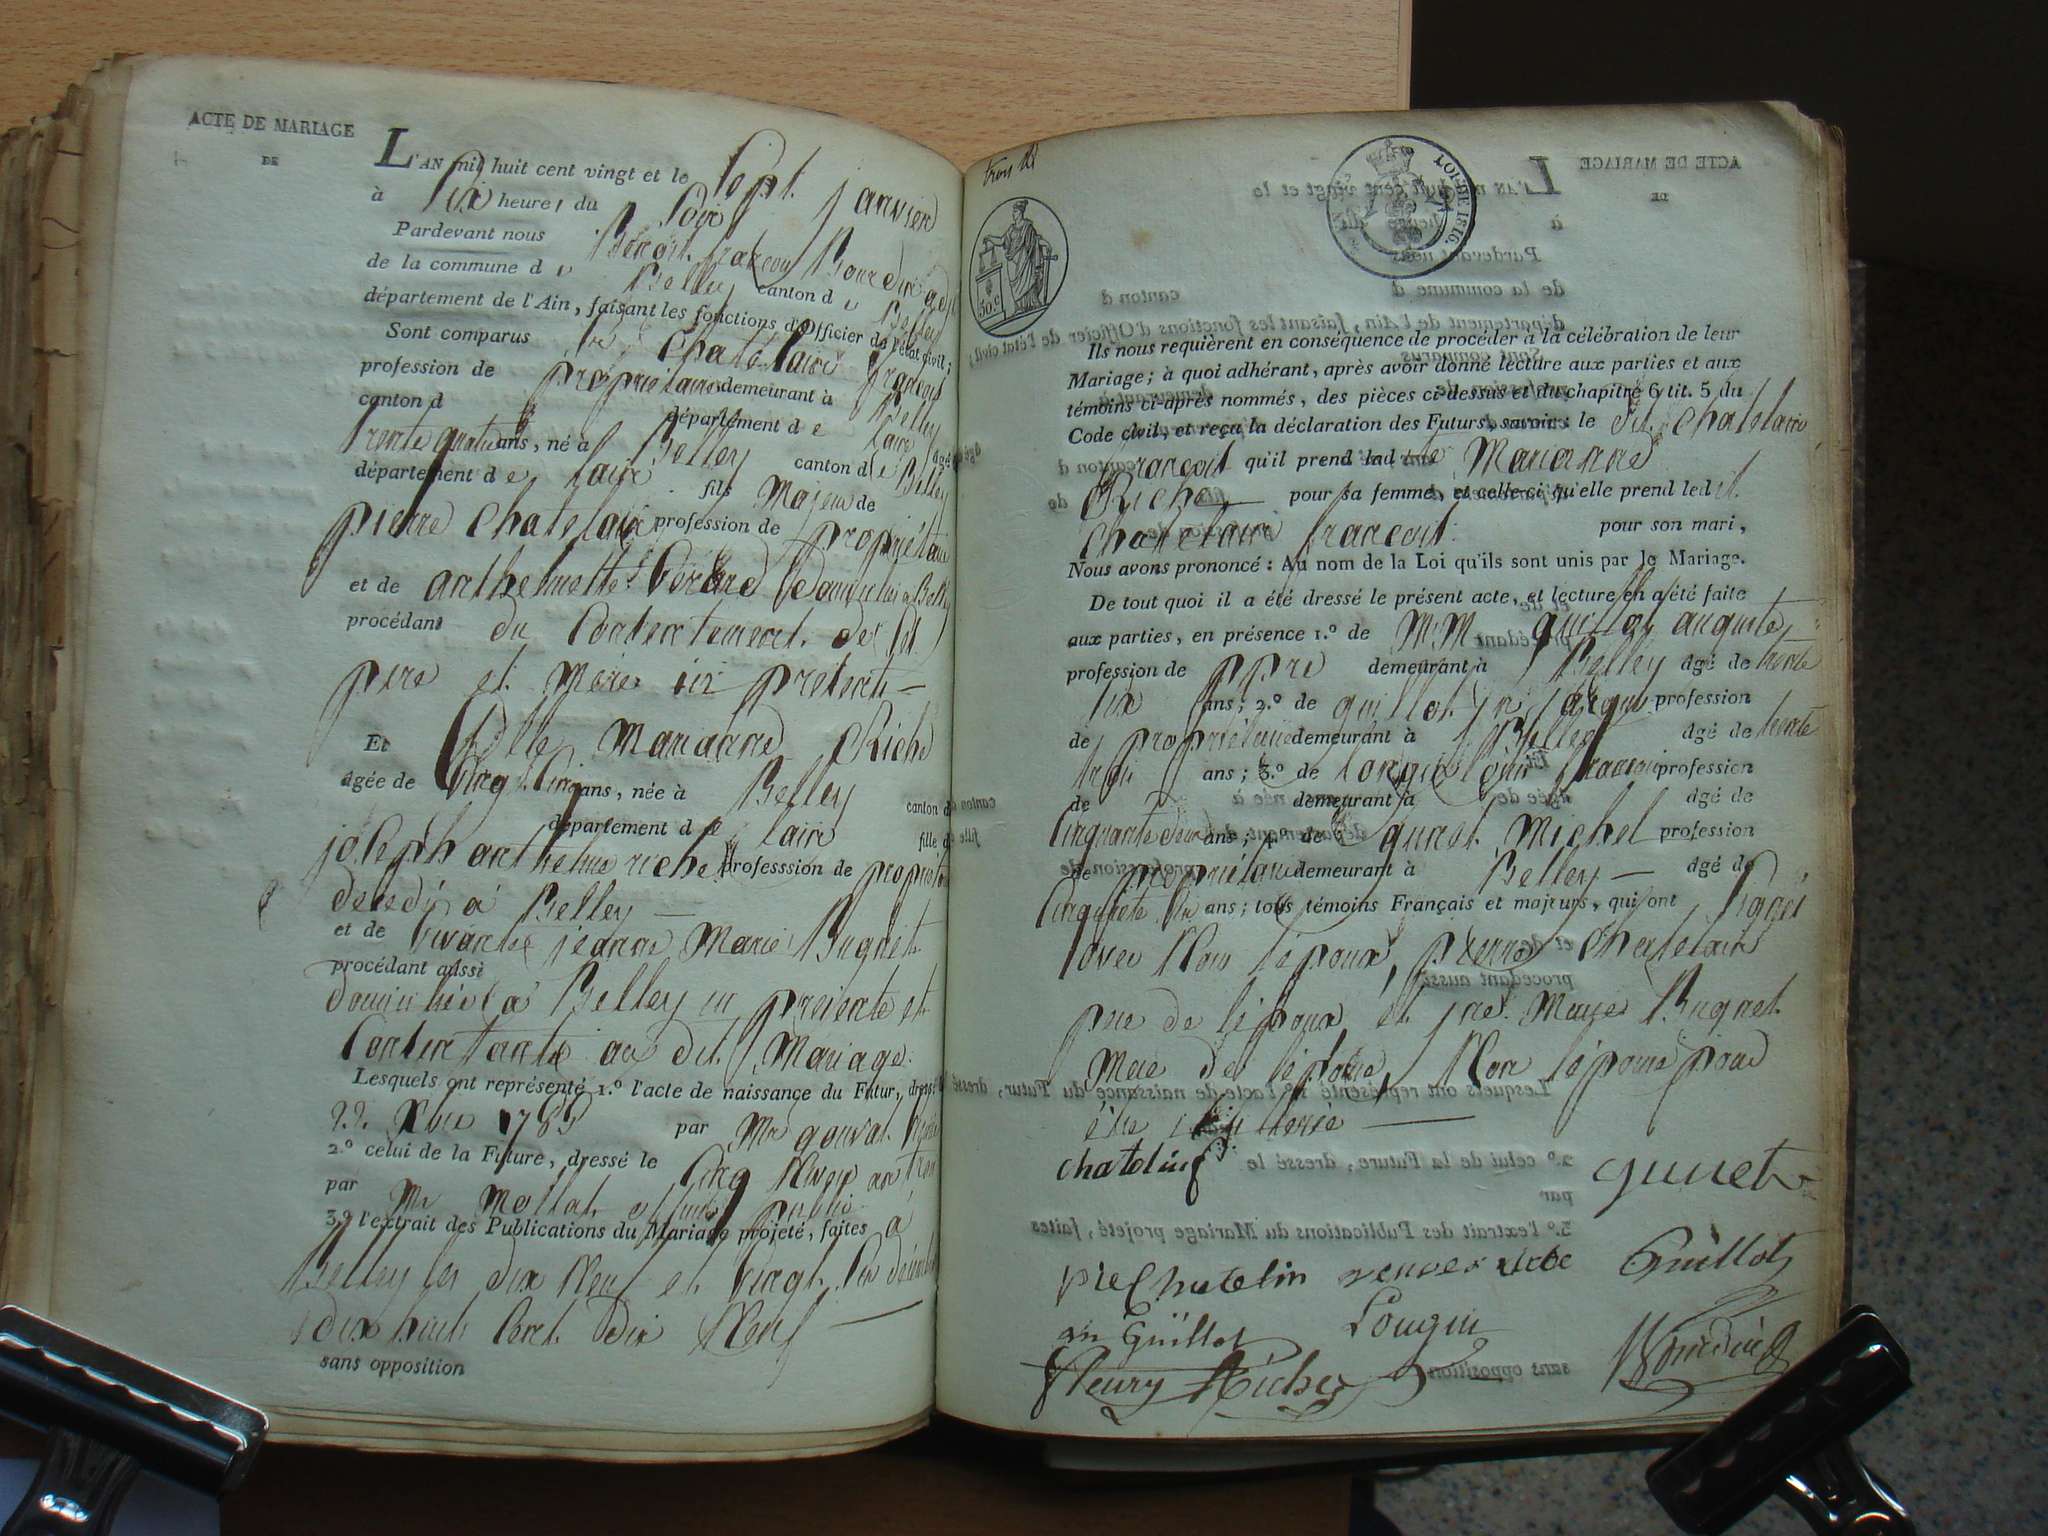 ACTE DE MARIAGE
DE
L'AN mil huit cent vingt et le sept janvier
à six heures du soir
Pardevant nous Benoit françois Bourdin adj
de la commune d Belley canton d Belley
département de l'Ain, faisant les fonctions d'Officier de l'état civil;
Sont comparus Sr Chatelain françois
profession de propriétaire demeurant à Belley
canton d département de lain agé de
trente quatre ans, né à Belley canton de Belley
département de lain fils Majeur de
pierre Chatelain profession de propriétaire
et de anthelmette domicilies a Belley
procédant du Consentement de sd
pere et Mere ici présents —
Et Delle Marianne Riche
agée de vingt cinq ans, née à Belley canton d
département de lain fille de
joseph anthelme riche professsion de propriétaire
decedé à Belley —
et de vivante jeanne Marie Buynet
procédant aussi
domiciliée à Belley ici présente et
Consentante au dit Mariage.
Lesquels ont représenté 1.º l'acte de naissance du Futur, dressé
22 Xbre 1785 par Mr gouvat
2.º celui de la Future, dressé le cinq Nivose an trois
par Mr Mollat officier public
3.º l'extrait des Publications du Mariage projeté, faites à
Belley les dix Neuf et vingt six décembre
dix huit Cent dix Neuf —
sans opposition
trois
50 c
LOI DE 1816.
Ils nous requièrent en conséquence de procéder à la célébration de leur
Mariage; à quoi adhérant, après avoir donné lecture aux parties et aux
témoins ci-après nommés, des pièces ci-dessus et du chapitre 6 tit. 5 du
Code civil, et reçu la déclaration des Futurs, savoir: le Sr. Chatelain
françois qu'il prend lad ite Marianne
Riche — pour sa femme, et celle-ci qu'elle prend led it
Chatelain françois pour son mari,
Nous avons prononcé: Au nom de la Loi qu'ils sont unis par le Mariage.
De tout quoi il a été dressé le présent acte, et lecture en a été faite
aux parties, en présence 1.º de Mr M guillot auguste
profession de ppre demeurant à Belley agé de trente
six ans; 2.º de guillot jn jacques profession
de propriétaire demeurant à Belley agé de trente
trois ans; 3.º de Longin Louis françois profession
de demeurant à agé de
cinquante deux ans; 4.º de gunet Michel profession
de propriétaire demeurant à Belley — agé de
cinquante six ans; tous témoins Français et majeurs, qui ont signés
avec Nous l'époux, pierre Chatelain
pere de l'epoux et jne Marie Buynet
Mere de l'epouse, Non l'epouse pour
être illiterée —
chatelin gunet
pre Chatelin veuve riche Guillot
jn Guillot Longin Bourdin
fleury Riche